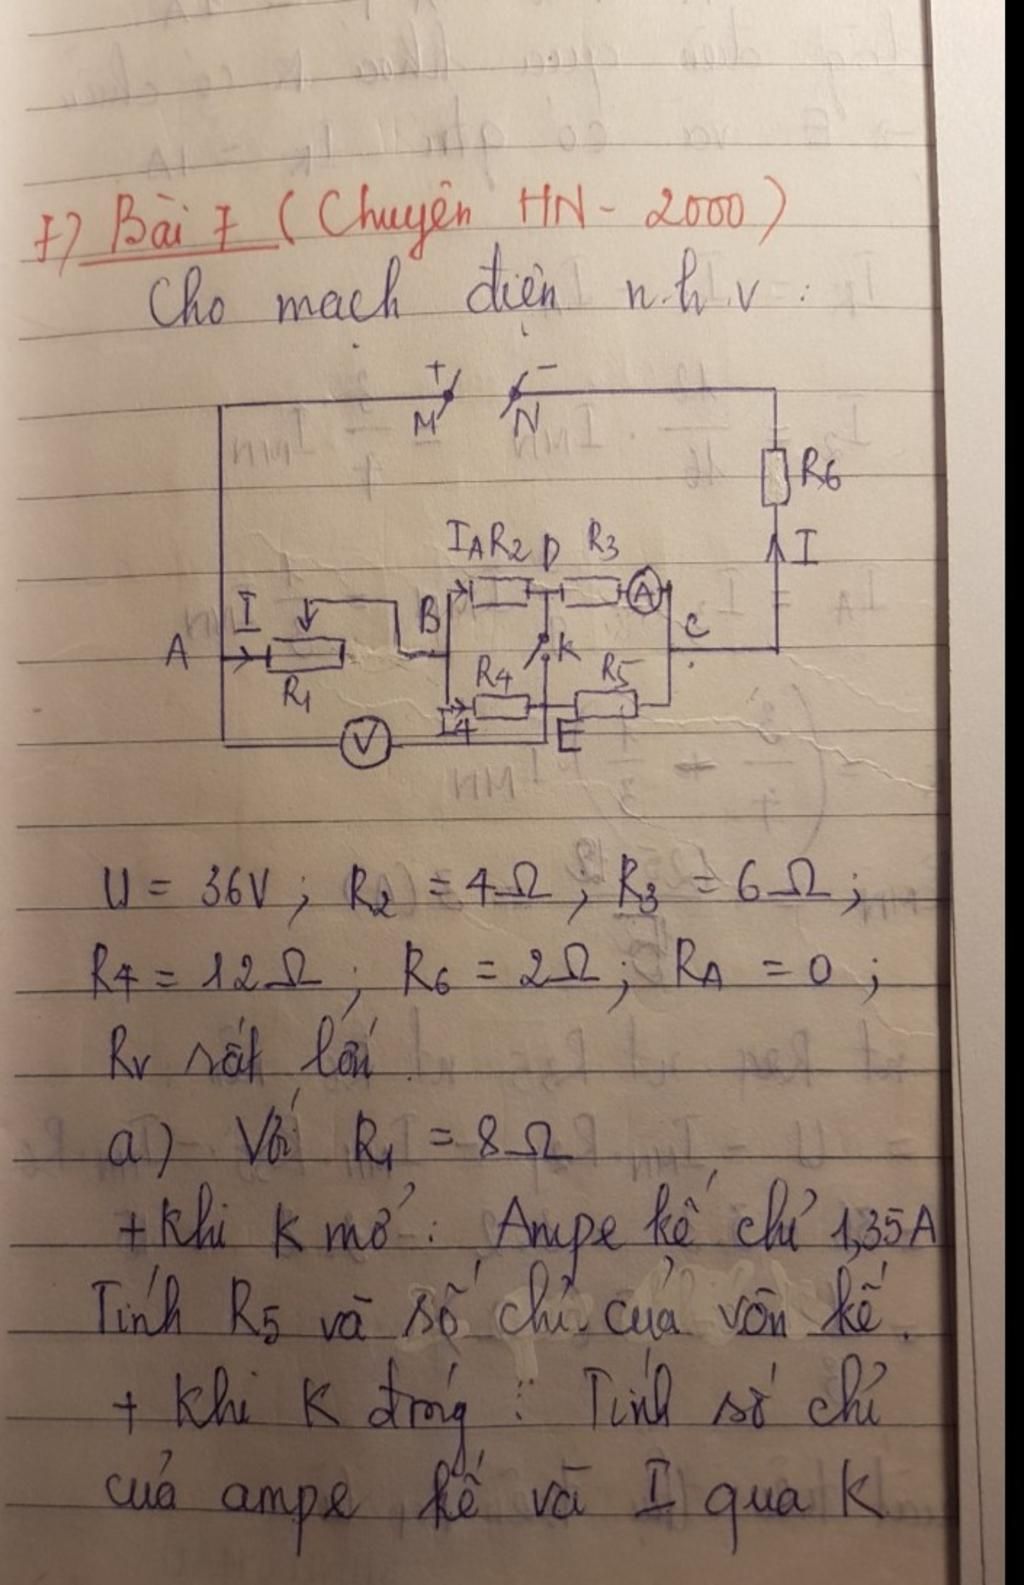 7) Bài 7 (Chuyên HN - 2000)
Cho mạch điện n.h.v :
+ -
M N
R6
IA R2 D R3
I
I
B
A
A
C
K
R1
R4 R5
I4
V
E
U = 36V ; R2 = 4Ω ; R3 = 6Ω ;
R4 = 12Ω ; R6 = 2Ω ; RA = 0 ;
Rv rất lớn
a) Với R1 = 8Ω
+ Khi K mở : Ampe kế chỉ 1,35A
Tính R5 và số chỉ của vôn kế.
+ Khi K đóng : Tính số chỉ
của ampe kế và I qua K